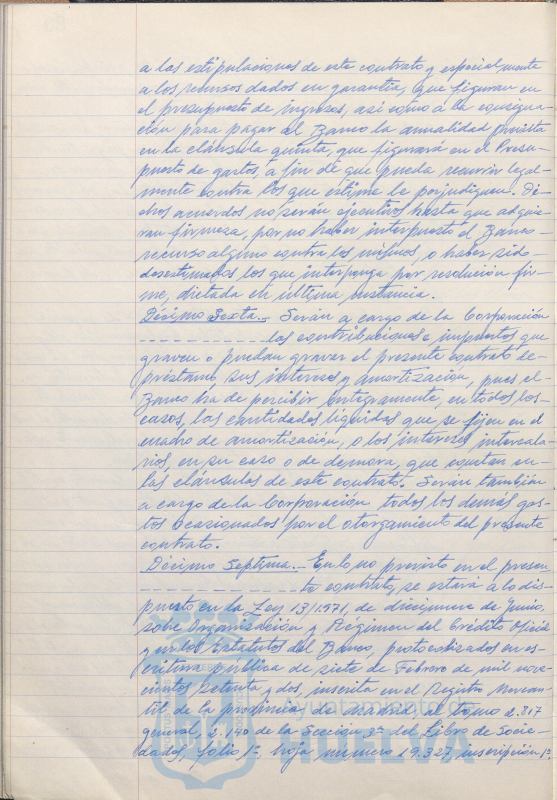 a las estipulaciones de este contrato y especialmente
a los recursos dados en garantía, que figuran en
el presupuesto de ingresos, así como a la consigna-
ción para pagar al Banco la anualidad prevista
en la cláusula quinta, que figurará en el Presu-
puesto de gastos, a fin de que pueda recurrir legal-
mente contra los que estime le perjudiquen. Di-
chos acuerdos no serán ejecutivos hasta que adquie-
ran firmeza, por no haber interpuesto el Banco-
recurso alguno contra los mismos, o haber sido-
desestimados los que interponga por resolución fir-
me, dictada en última instancia.
Décimo Sexta.- Serán a cargo de la Corporación
------------ las contribuciones e impuestos que
graven o puedan gravar el presente contrato de-
préstamo, sus intereses y amortización, pues el-
Banco ha de percibir íntegramente, en todos los-
casos, las cantidades líquidas que se fijen en el
cuadro de amortización, o los intereses intercala-
rios, en su caso o de demora, que constan en-
las cláusulas de este contrato. Serán también
a cargo de la Corporación todos los demás gas-
tos ocasionados por el otorgamiento del presente
contrato.
Décimo Septima.- En lo no previsto en el presen-
------------ te contrato, se estará a lo dis-
puesto en la Ley 13/1.971, de diecinueve de Junio,
sobre Organización y Régimen del Crédito Oficial
y en los Estatutos del Banco, protocolizados en es-
critura pública de siete de Febrero de mil nove-
cientos setenta y dos, inscrita en el Registro Mercan-
til de la provincia de Madrid, al tomo 2.817
general, 2.140 de la Sección 3ª del Libro de Socie-
dades, folio 1º, hoja número 19.327, inscripción 1ª.
Ayuntamiento de
HUELVA